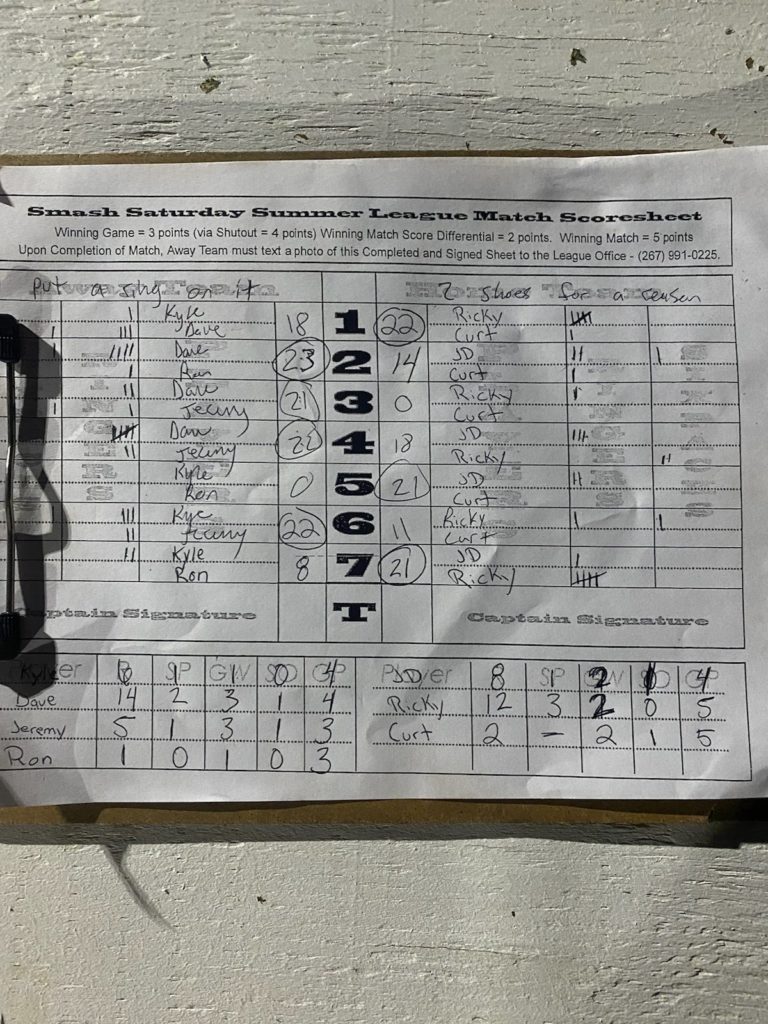 Smash Saturday Summer League Match Scoresheet
Winning Game = 3 points (via Shutout = 4 points) Winning Match Score Differential = 2 points. Winning Match = 5 points
Upon Completion of Match, Away Team must text a photo of this Completed and Signed Sheet to the League Office - (267) 991-0225.
Put a ring on it 2 shoes for a reason
Kyle 18 1 22 Ricky
Dave Curt
Dave 23 2 14 JD
Ron Curt
Dave 21 3 0 Ricky
Jeremy Curt
Dave 22 4 18 JD
Jeremy Ricky
Kyle 0 5 21 JD
Ron Curt
Kyle 22 6 11 Ricky
Jeremy Curt
Kyle 8 7 21 JD
Ron Ricky
Captain Signature T Captain Signature
Kyle 8 1 0 4 JD 8 1 2 1 4
Dave 14 2 3 1 4 Ricky 12 3 2 0 5
Jeremy 5 1 3 1 3 Curt 2 - 2 1 5
Ron 1 0 1 0 3